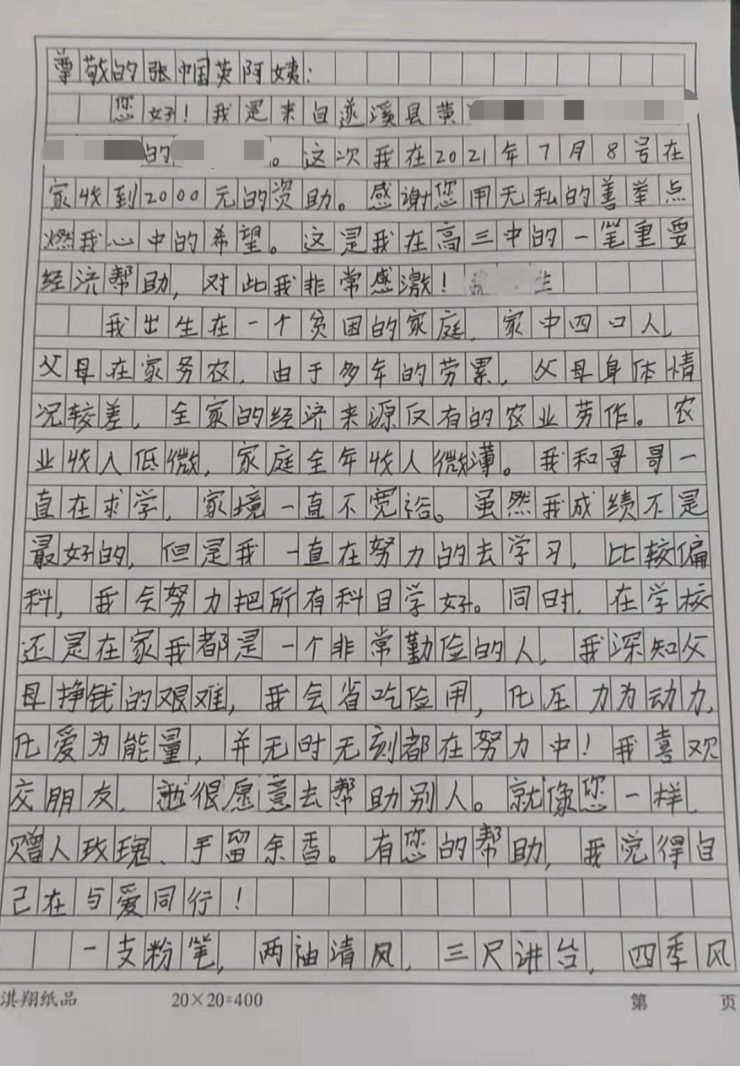 尊敬的张中国英阿姨：
您好！我是来自遂溪县黄
的。这次我在2021年7月8号在
家收到2000元的资助。感谢您用无私的善举点
燃我心中的希望。这是我在高三中的一笔重要
经济帮助，对此我非常感激！
我出生在一个贫困的家庭，家中四口人，
父母在家务农，由于多年的劳累，父母身体情
况较差，全家的经济来源仅有的农业劳作。农
业收入低微，家庭全年收入微薄。我和哥哥一
直在求学，家境一直不宽裕。虽然我成绩不是
最好的，但是我一直在努力的去学习，比较偏
科，我会努力把所有科目学好。同时，在学校
还是在家我都是一个非常勤俭的人，我深知父
母挣钱的艰难，我会省吃俭用，化压力为动力，
化爱为能量，并无时无刻都在努力中！我喜欢
交朋友，很愿意去帮助别人。就像您一样，
赠人玫瑰、手留余香。有您的帮助，我觉得自
己在与爱同行！
一支粉笔，两袖清风，三尺讲台，四季风
淇翔纸品 20×20=400 第 页